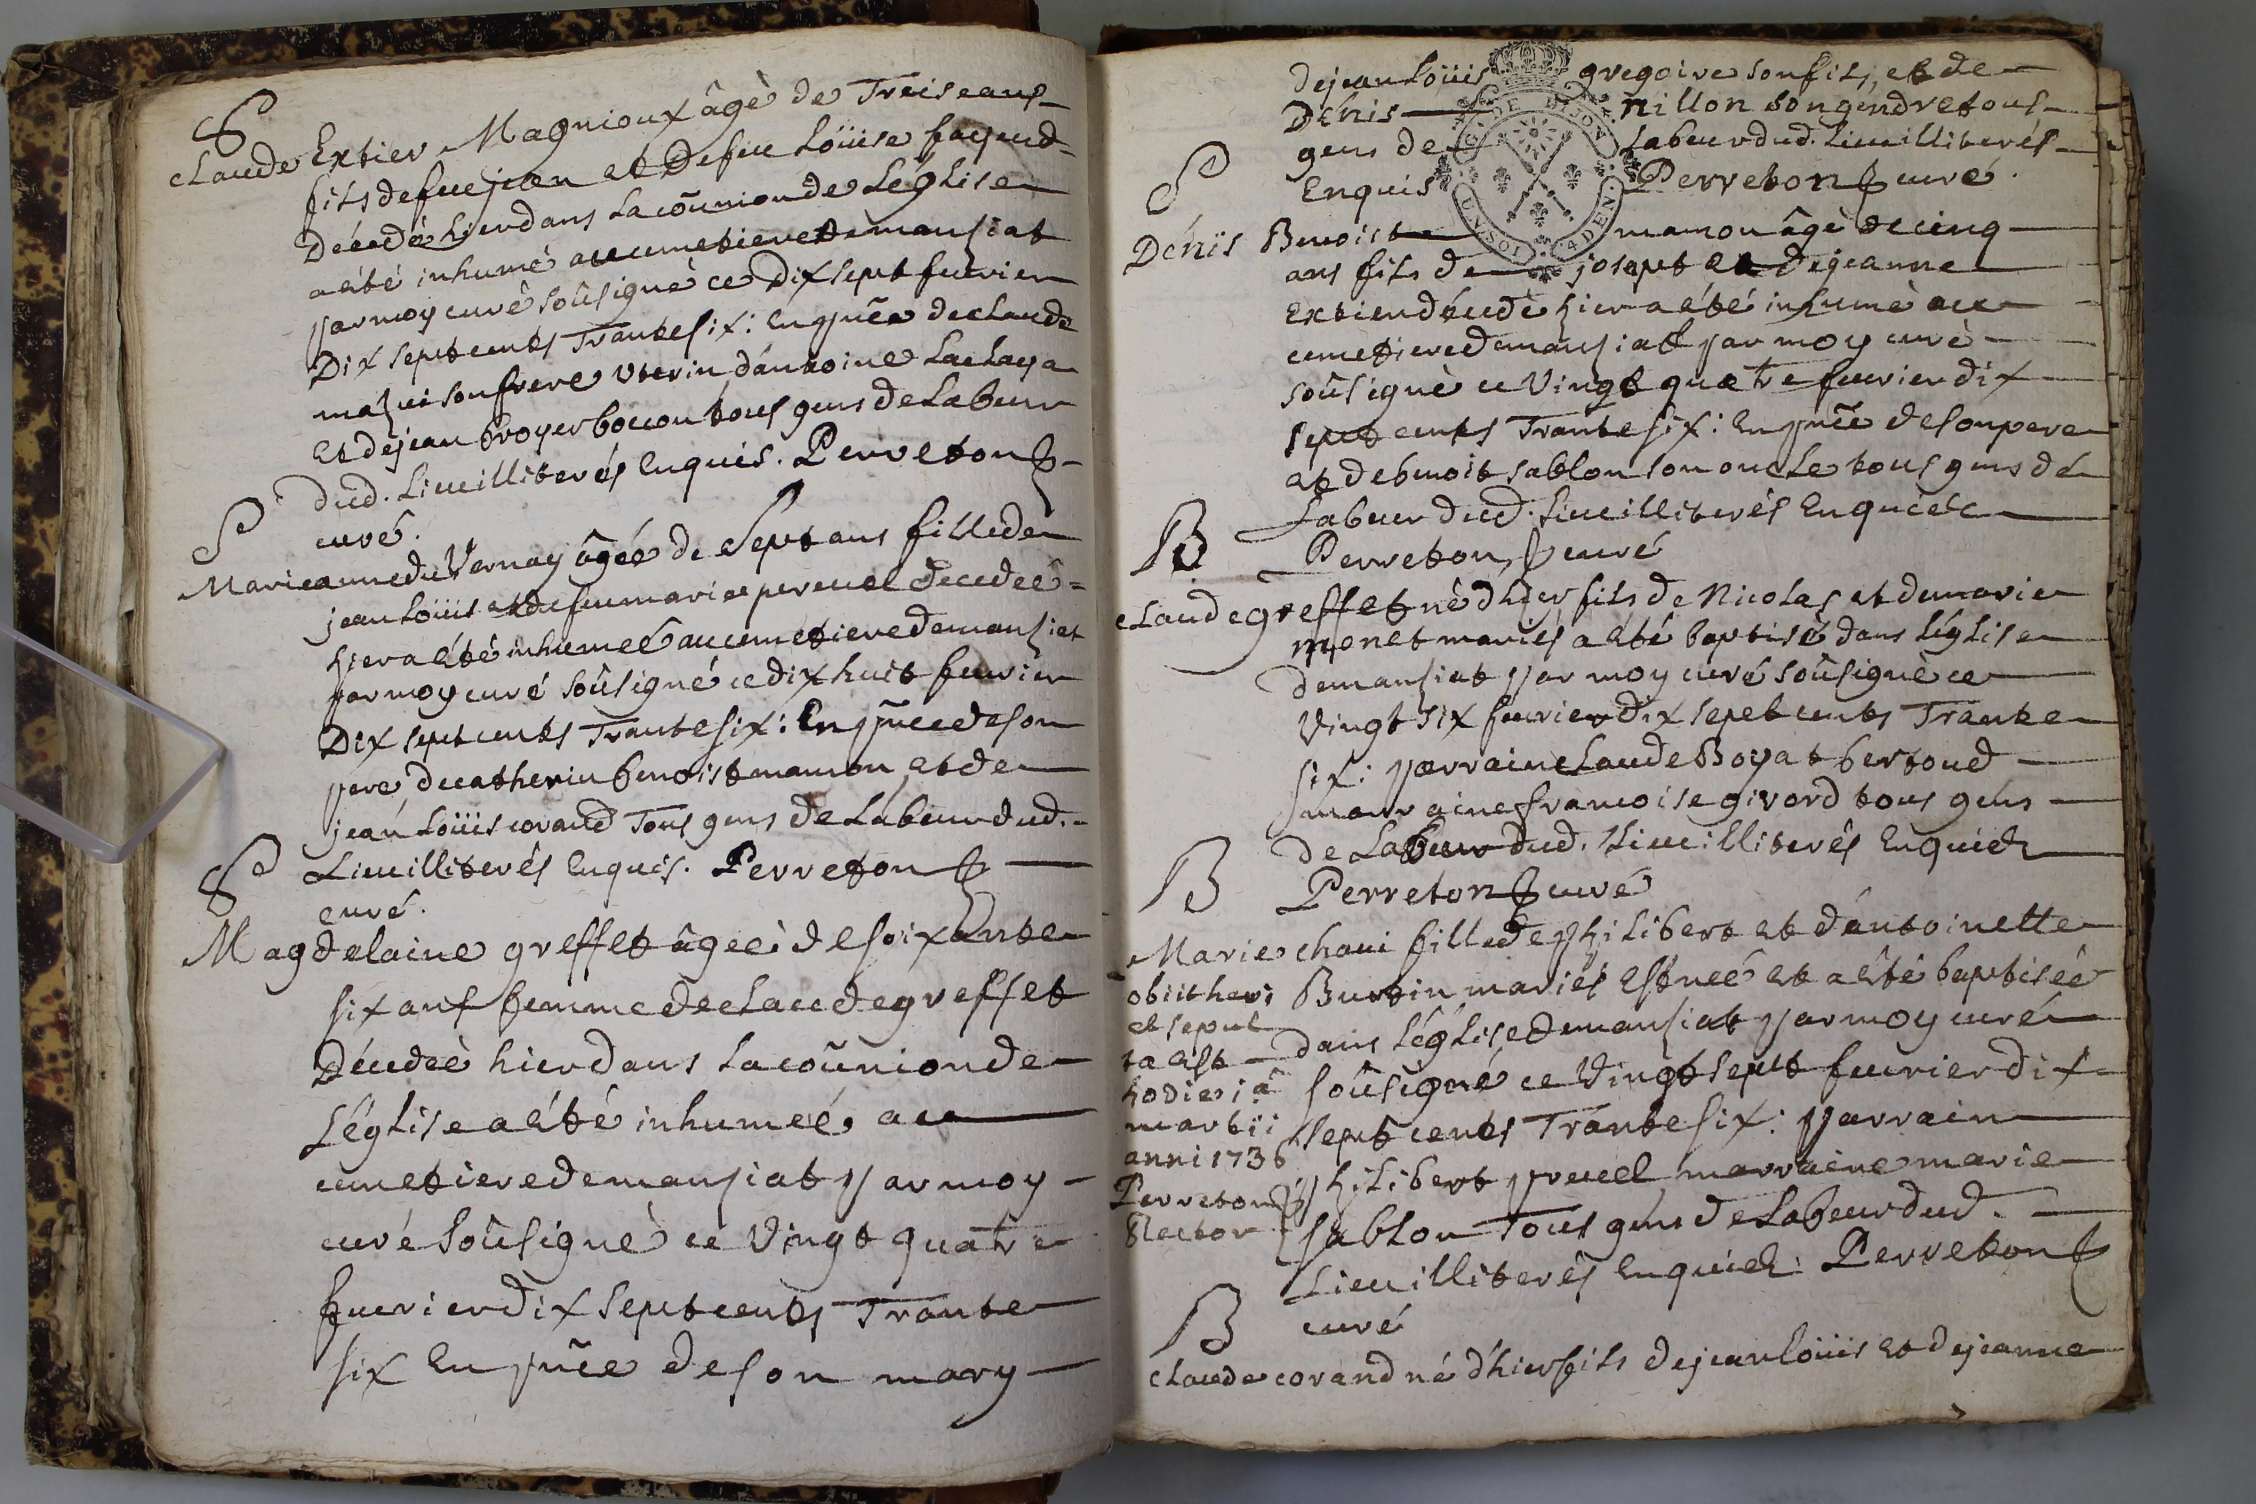 S
Claude Extier Magnioux âgé de Treiseans
fils de feu jean et De feu Loüise fayend
Décedé hier dans La coũnion de Léglise
a été inhumé au cimetiere de mansiat
par moy curé soûsigné ce Dix sept feuvrier
Dix sept cents Trante six: En pñce de claude
mazui son frere uterin d'antoine Lachaya
et de jean broyer bouon tous gens de Labeur
dud. Lieu illiterés Enquis. Perreton
curé.
S
Marieanne du Vernay âgée de Sept ans fille de
jean Loüis et de feu marie pereuel decedée
hier a été inhumeé au cimetiere de mansiat
par moy curé soûsigné ce dix huit feuvrier
Dix sept cents Trante six: En pñce de son
pere de catherin benoist mamon et de
jean Loüis corand Tous gens de Labeur dud.
Lieu illiterés Enquis. Perreton
curé.
S
Magdelaine greffet âgeè de soixante
six ans femme de claude greffet
Décedeè hier dans La coũnion de
L'église a été inhumeé au
cimetiere de mansiat par moy
curé soûsigné ce Vingt quatre
feuvrier dix sept cents Trante
six En pñce de son mary
de jean Loüis gregoire son fils, et de
Denis nillon son gendre tous
gens de Labeur dud. Lieu illiterés
Enquis Perreton curé.
G. DE DIJON
UN SOL 4 DEN.
S
Dénis Benoist mamon âgè de cinq
ans fils de josept et de jeanne
Extier décedé hier a été inhumè au
cimetiere de mansiat par moy curè
soûsignè ce Vingt quatre feuvrier dix
sept cents Trante six: En pñce de son pere
et de benoit sablon son oncle tous gens de
Labeur dud. Lieu illiterés Enquis
Perreton curé
B
Claude greffet nè d'hier fils de Nicolas et de marie
monet mariés a été baptisé dans Léglise
de mansiat par moy curé soûsignè ce
Vingt six feuvrier dix sept cents Trante
six: parrain claude Boyat bertoud
marraine francoise givord tous gens
de Labeur dud. Lieu illiterés Enquis
Perreton curé
B
Marie chavi fille de philibert et d'antoinette
Burtin mariés est neé et a été baptiseé
dans Léglise de mansiat par moy curé
soûsigné ce Vingt sept feuvrier dix
sept cents Trante six: parrain
philibert preuel marraine marie
sablon Tous gens de Labeur dud.
Lieu illiterés Enquis. Perreton
curé
obiit heri
et sepul
ta est
hodie iâ
martii
anni 1736
Perreton
Rector
B
claude corand né d'hier fils de jean loüis et de jeanne